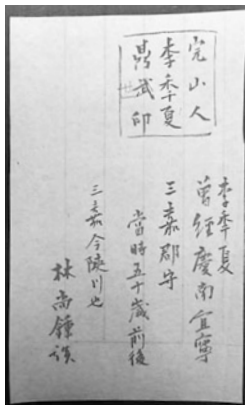 完山人
李季夏
鼎武印
李季夏
曾經慶南宜寧
三嘉郡守
當時五十歲前後
三嘉今陜川也
林尚鍾談